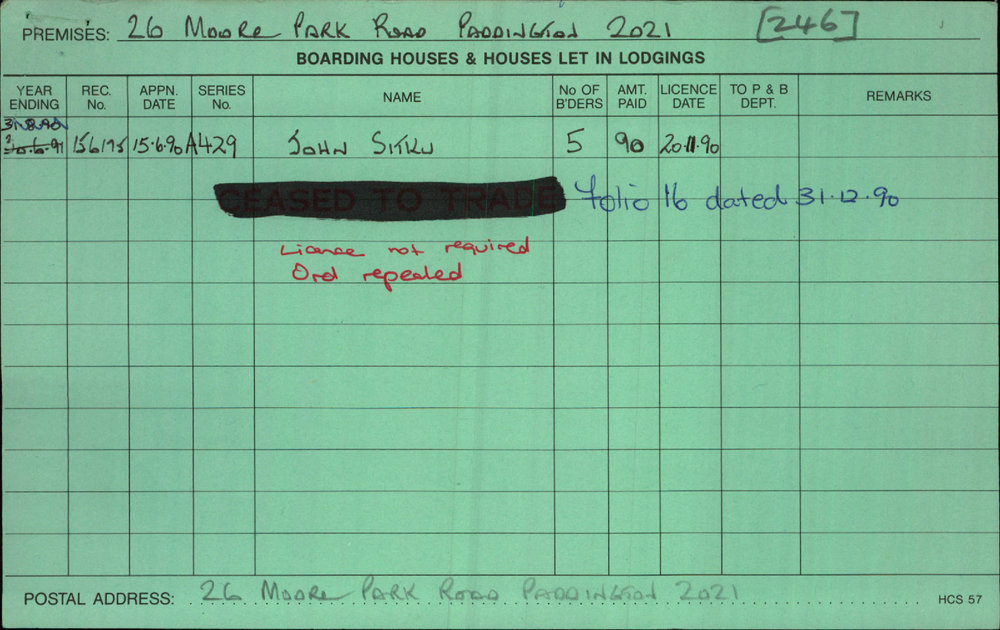 PREMISES: 26 MOORE PARK ROAD PADDINGTON 2021 [246]
BOARDING HOUSES & HOUSES LET IN LODGINGS
YEAR ENDING REC. No. APPN. DATE SERIES No. NAME No OF B'DERS AMT. PAID LICENCE DATE TO P & B DEPT. REMARKS
156175 15.6.90 A429 JOHN SITKU 5 90 20.11.90
CEASED TO TRADE Folio 16 dated 31.12.90
Licence not required
Ord repealed
POSTAL ADDRESS: 26 MOORE PARK ROAD PADDINGTON 2021 HCS 57